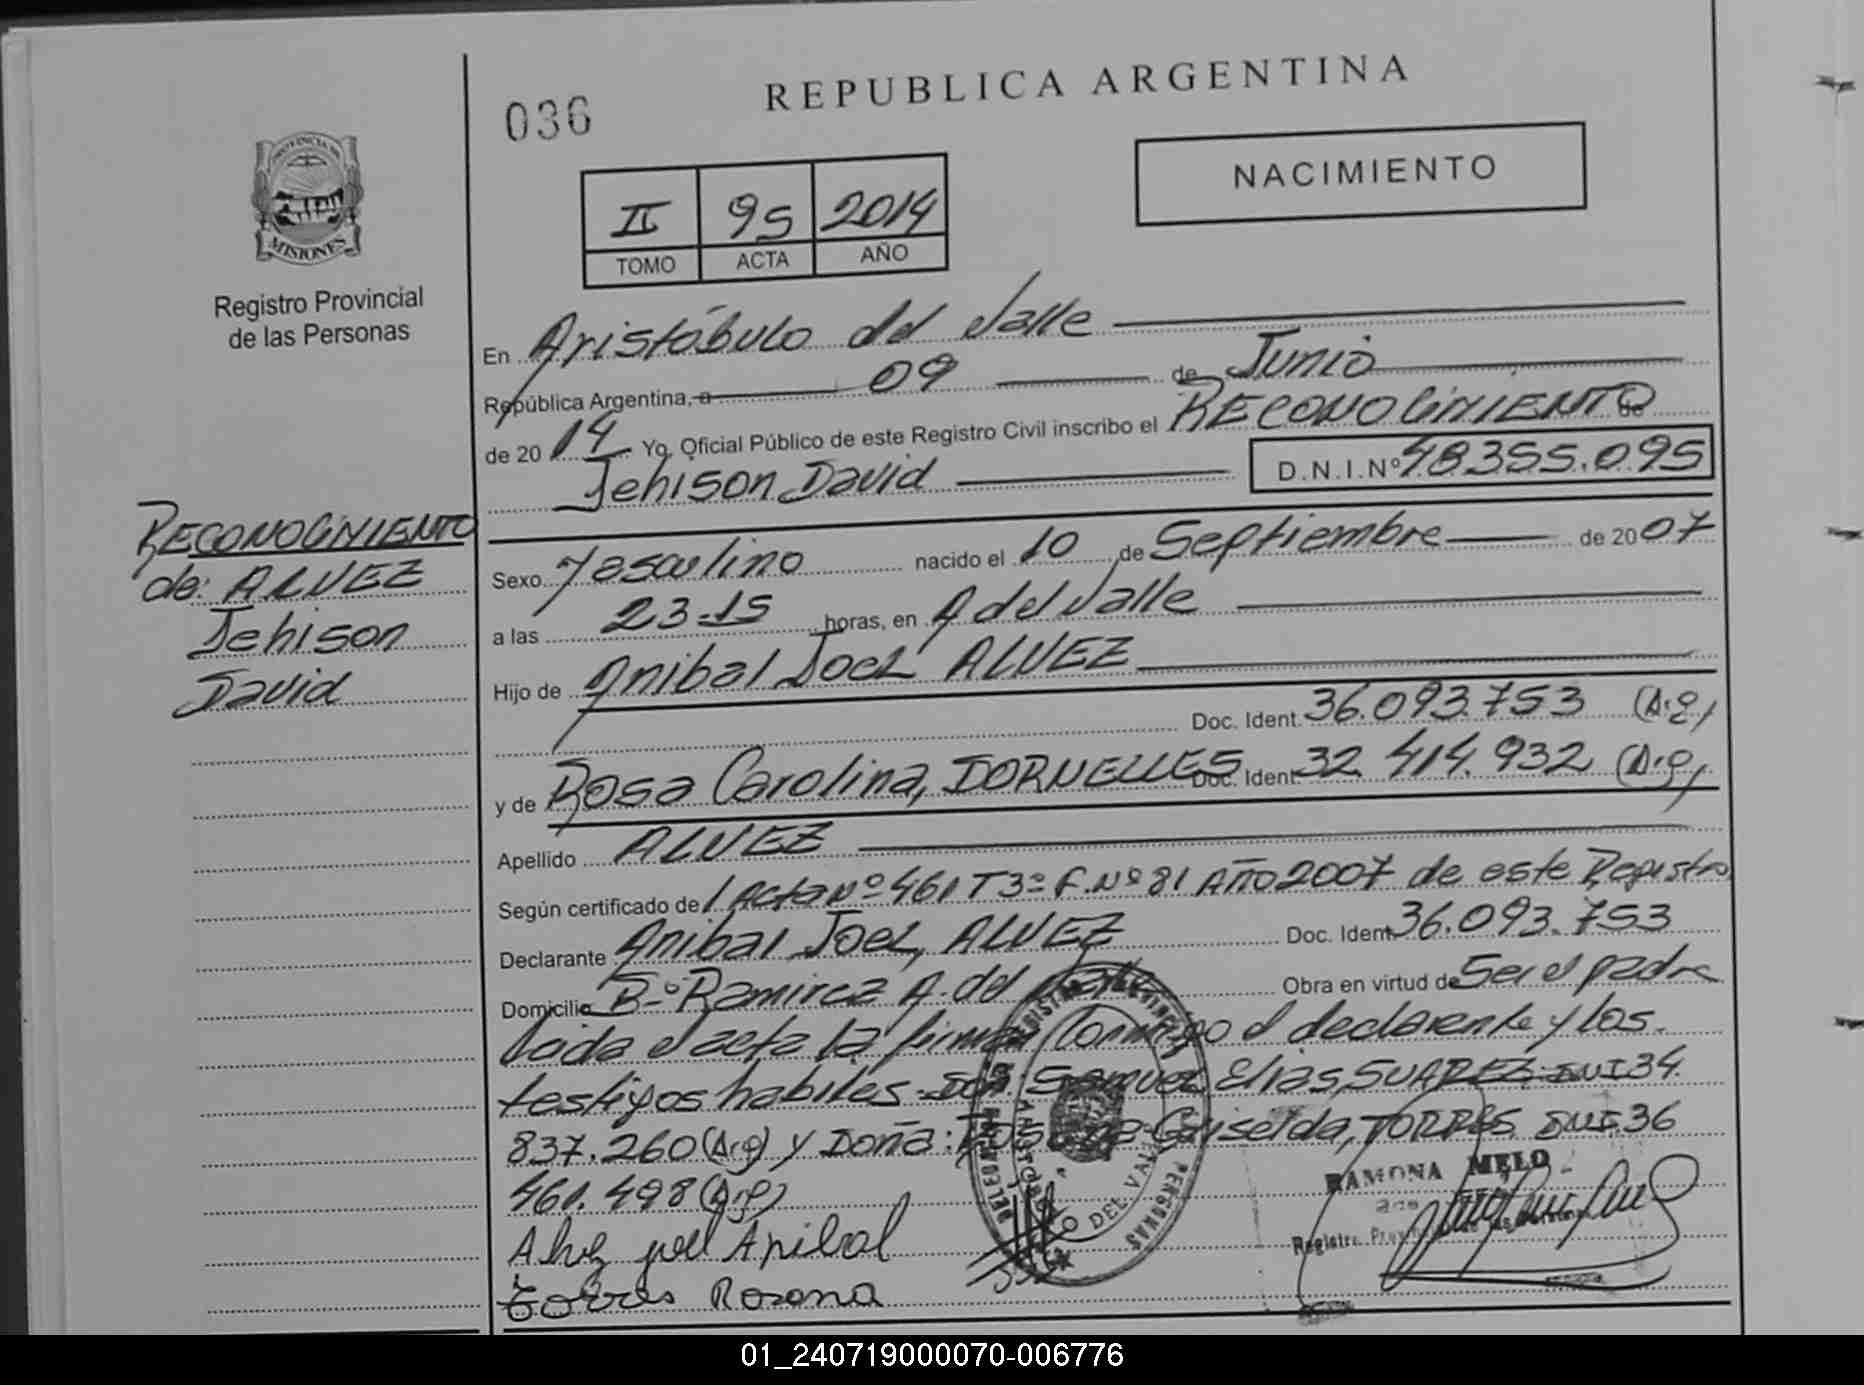 036
REPUBLICA ARGENTINA
NACIMIENTO
II 95 2014
TOMO ACTA AÑO
PROVINCIA DE
MISIONES
Registro Provincial
de las Personas
En Aristóbulo del Valle
República Argentina, a 09 de Junio
de 2014 Yo, Oficial Público de este Registro Civil inscribo el RECONOCIMIENTO de
Jehison David D.N.I.Nº 48.355.095
RECONOCIMIENTO
de: ALVEZ
Jehison
David
Sexo Masculino nacido el 10 de Septiembre de 2007
a las 23-15 horas, en A del Valle
Hijo de Anibal Joel ALVEZ
Doc. Ident. 36.093.753 (Arg)
y de Rosa Carolina, DORNELLES Doc. Ident. 32 414.932 (Arg)
Apellido ALVEZ
Según certificado de Acta Nº 461 T 3º F. Nº 81 AÑO 2007 de este Registro
Declarante Anibal Joel, ALVEZ Doc. Ident. 36.093.753
Domicilio Bº Ramirez A. del Valle Obra en virtud de Ser el padre
Leida el acta la firman conmigo el declarante y los
testigos habiles Don: Samuel Elias, SUAREZ DNI 34
837.260 (Arg) y Doña: Griselda, TORRES DNI. 36
461.498 (Arg)
Alvez joel Anibal
Torres Rosana
ARISTOBULO DEL VALLE
RAMONA MELO
01_240719000070-006776